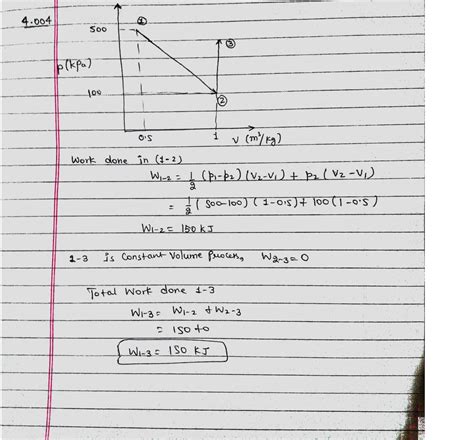 4.004
①
500
③
p(kpa)
100
②
0.5
1
V (m³/kg)
Work done in (1-2)
W1-2 = 1/2 (p1-p2) (V2-V1) + p2 (V2-V1)
= 1/2 (500-100) (1-0.5) + 100 (1-0.5)
W1-2 = 150 KJ
2-3 is Constant Volume Process, W2-3 = 0
Total Work done 1-3
W1-3 = W1-2 + W2-3
= 150 + 0
W1-3 = 150 KJ